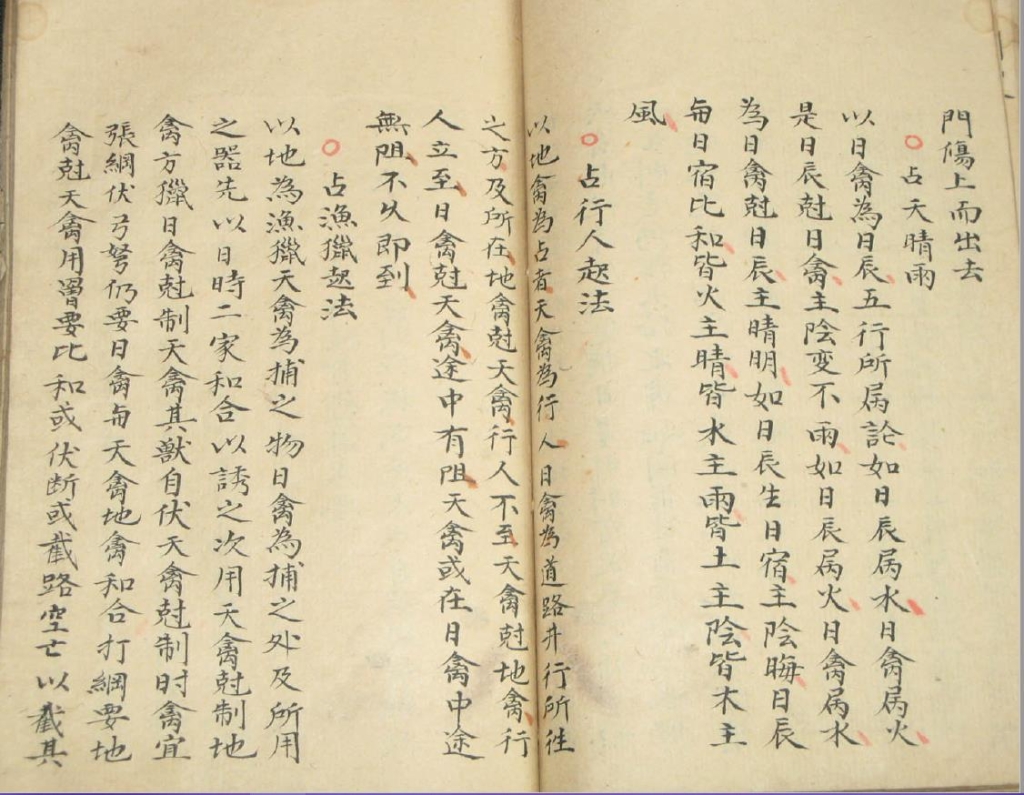 門傷上而出去
○占天晴雨
以日禽為日辰五行所属論如日辰属水日禽属火
是日辰尅日禽主陰变不雨如日辰属火日禽属水
為日禽尅日辰主晴明如日辰生日宿主陰晦日辰
每日宿比和皆火主晴皆水主雨皆土主陰皆木主
風
○占行人起法
以地禽為占者天禽為行人日禽為道路井行所往
之方及所在地禽尅天禽行人不至天禽尅地禽行
人立至日禽尅天禽途中有阻天禽或在日禽中途
無阻不久即到
○占漁獵起法
以地為漁獵天禽為捕之物日禽為捕之处及所用
之器先以日時二家和合以誘之次用天禽尅制地
禽方獵日禽尅制天禽其獸自伏天禽尅制时禽宜
張綱伏弓弩仍要日禽每天禽地禽和合打綱要地
禽尅天禽用罾要比和或伏断或截路空亡以截其